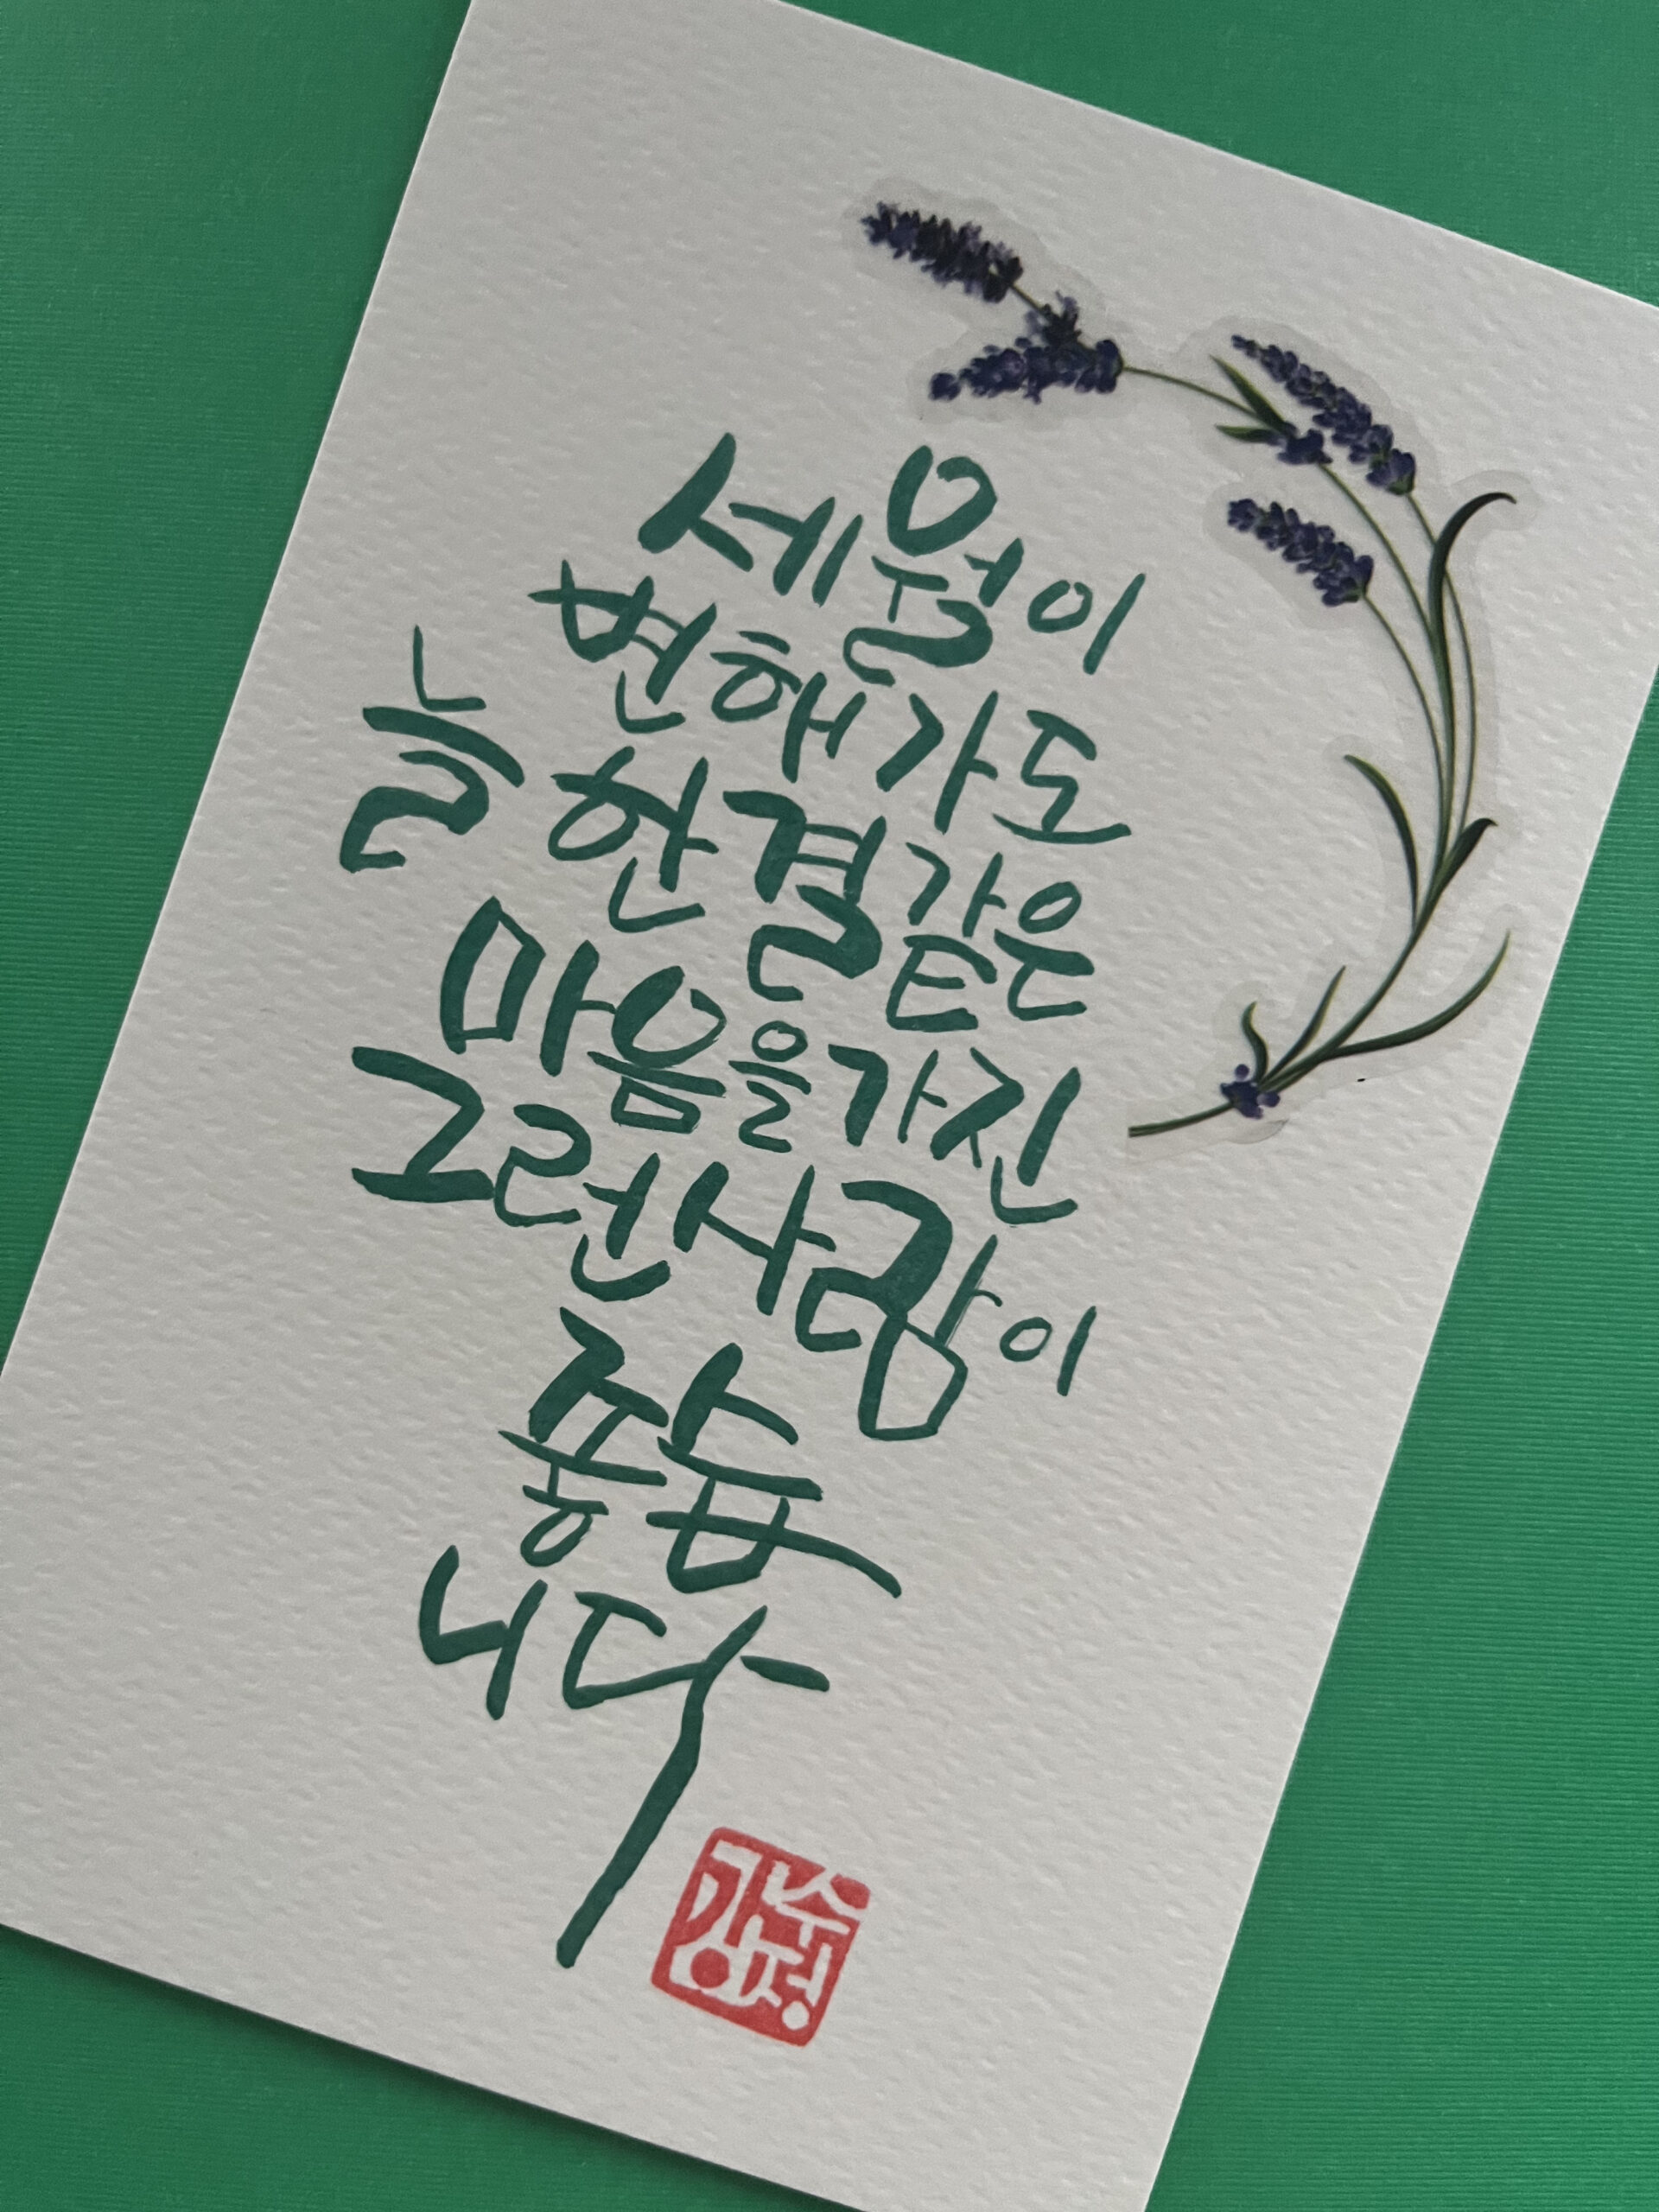 세월이
변해가도
늘 한결같은
마음을 가진
그런 사람이
좋습
니다
강수정